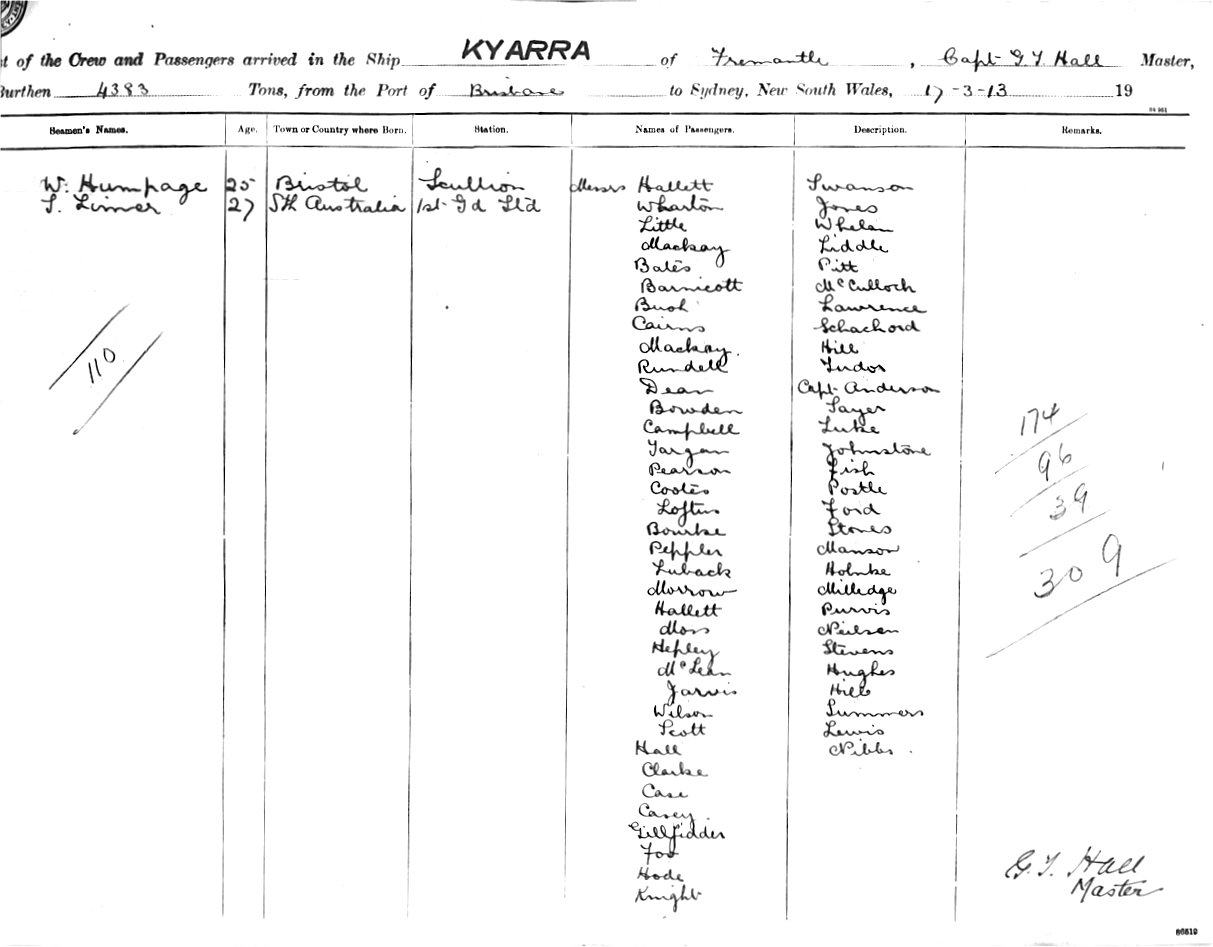 t of the Crew and Passengers arrived in the Ship KYARRA of Fremantle, Capt G.T. Hall Master,
Burthen 4383 Tons, from the Port of Brisbane to Sydney, New South Wales, 17-3-13 19
Seamen's Names. Age. Town or Country where Born. Station. Names of Passengers. Description. Remarks.
W. Humpage 25 Bristol Scullion Messrs Hallett Swanson
27 Sth Australia 1st Gd Std Wharton Jones
Little Whelan
Mackay Liddle
Bates Pitt
Barnicott McCulloch
Bush Lawrence
Cairns
Mackay. Hill
110
Rundell Tudor
Dean Capt Anderson
Bowden Sayer
Campbell Luke
174
Johnstone
Pearson Fish
96
Cootes Postle
Loftus Ford
39
Bourke Stones
Peppler Manson
Luback Hohnke
309
Morrow Milledge
Hallett Purvis
Moss Neilsen
Hepley Stevens
McLean Hughes
Jarvis Hill
Wilson Summers
Scott Lewis
Hall Nibbs.
Clarke
Case
Casey.
Foo
Hode
Knight
G.T. Hall
Master